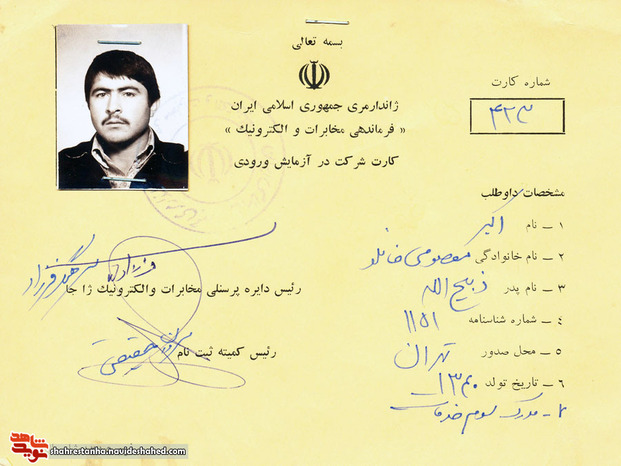 بسمه تعالی
ژاندارمری جمهوری اسلامی ایران
« فرماندهی مخابرات و الکترونیک »
کارت شرکت در آزمایش ورودی
شماره کارت
۴۲۳
مشخصات داوطلب
۱ ـ نام اکبر
۲ ـ نام خانوادگی معصومی خانلو
۳ ـ نام پدر ذبیح الله
۴ ـ شماره شناسنامه ۱۱۵۱
۵ ـ محل صدور تهران
۶ ـ تاریخ تولد ۱۳۴۰
۷ ـ مدرک سوم خدمات
سرهنگ فرزاد
رئیس دایره پرسنلی مخابرات والکترونیک ژا جا
رئیس کمیته ثبت نام
حقیقی
نوید شاهد
shahrestanha.navideshahed.com